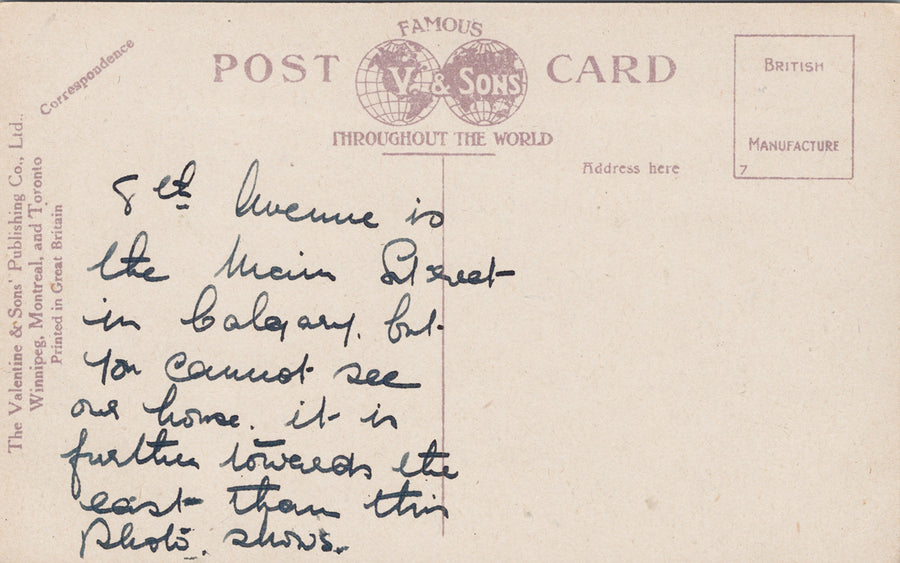 FAMOUS
POST V. & SONS CARD
THROUGHOUT THE WORLD
BRITISH
MANUFACTURE
7
Correspondence
Address here
The Valentine & Sons' Publishing Co., Ltd.,
Winnipeg, Montreal, and Toronto
Printed in Great Britain
8th Avenue is
the Main Street
in Calgary. but
You cannot see
our house. it is
further towards the
east than this
photo. shows.